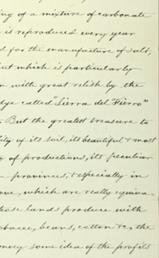 ing of a mixture of carbonate
is reproduced every year
for the manufacture of salt,
but which is particularly
with great relish by the
called "Sierra del Fierro"
But the greatest treasure to
of its soil, its beautiful & most
of productions, its peculiar
province, especially in
which are really
lands produce with
beans, cotton &c, the
some idea of the profits